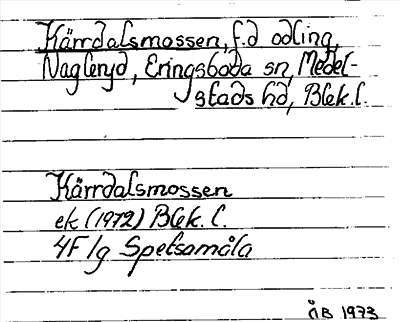 Kärrdalsmossen, f.d odling,
Nagleryd, Eringsboda sn, Medel-
stads hd, Blek.l.
Kärrdalsmossen
ek (1972) Blek. l.
4F/g Spetsamåla
ÅB 1973